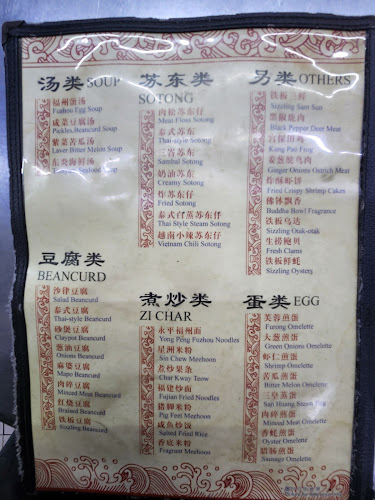 汤类 SOUP
福州蛋汤
Fuzhou Egg Soup
咸菜豆腐汤
Pickles Beancurd Soup
紫菜苦瓜汤
Laver Bitter Melon Soup
东炎海鲜汤
Seafood Soup
苏东类
SOTONG
肉松苏东仔
Meat Floss Sotong
泰式苏东
Thai-style Sotong
三峇苏东
Sambal Sotong
奶油苏东
Creamy Sotong
炸苏东仔
Fried Sotong
泰式蒸苏东仔
Thai Style Steam Sotong
越南小辣苏东仔
Vietnam Chili Sotong
另类 OTHERS
铁板三鲜
Sizzling Sam Sun
黑椒鹿肉
Black Pepper Deer Meat
宫保田鸡
Kung Pao Frog
姜葱鸵鸟肉
Ginger Onions Ostrich Meat
炸酥虾饼
Fried Crispy Shrimp Cakes
佛钵飘香
Buddha Bowl Fragrance
铁板乌达
Sizzling Otak-otak
生捞鲍贝
Fresh Clams
铁板鲜蚝
Sizzling Oysters
豆腐类
BEANCURD
沙律豆腐
Salad Beancurd
泰式豆腐
Thai-style Beancurd
砂煲豆腐
Claypot Beancurd
葱油豆腐
Onions Beancurd
麻婆豆腐
Mapo Beancurd
肉碎豆腐
Minced Meat Beancurd
红烧豆腐
Braised Beancurd
铁板豆腐
Sizzling Beancurd
煮炒类
ZI CHAR
永平福州面
Yong Peng Fuzhou Noodles
星洲米粉
Sin Chew Meehoon
煮炒果条
Char Kway Teow
福建炒面
Fujian Fried Noodles
猪脚米粉
Pig Feet Meehoon
咸鱼炒饭
Salted Fried Rice
香底米粉
Fragrant Meehoon
蛋类 EGG
芙蓉煎蛋
Furong Omelette
大葱煎蛋
Green Onions Omelette
虾仁煎蛋
Shrimp Omelette
苦瓜煎蛋
Bitter Melon Omelette
三皇蒸蛋
San Huang Steam Egg
肉碎煎蛋
Minced Meat Omelette
香蚝煎蛋
Oyster Omelette
腊肠煎蛋
Sausage Omelette